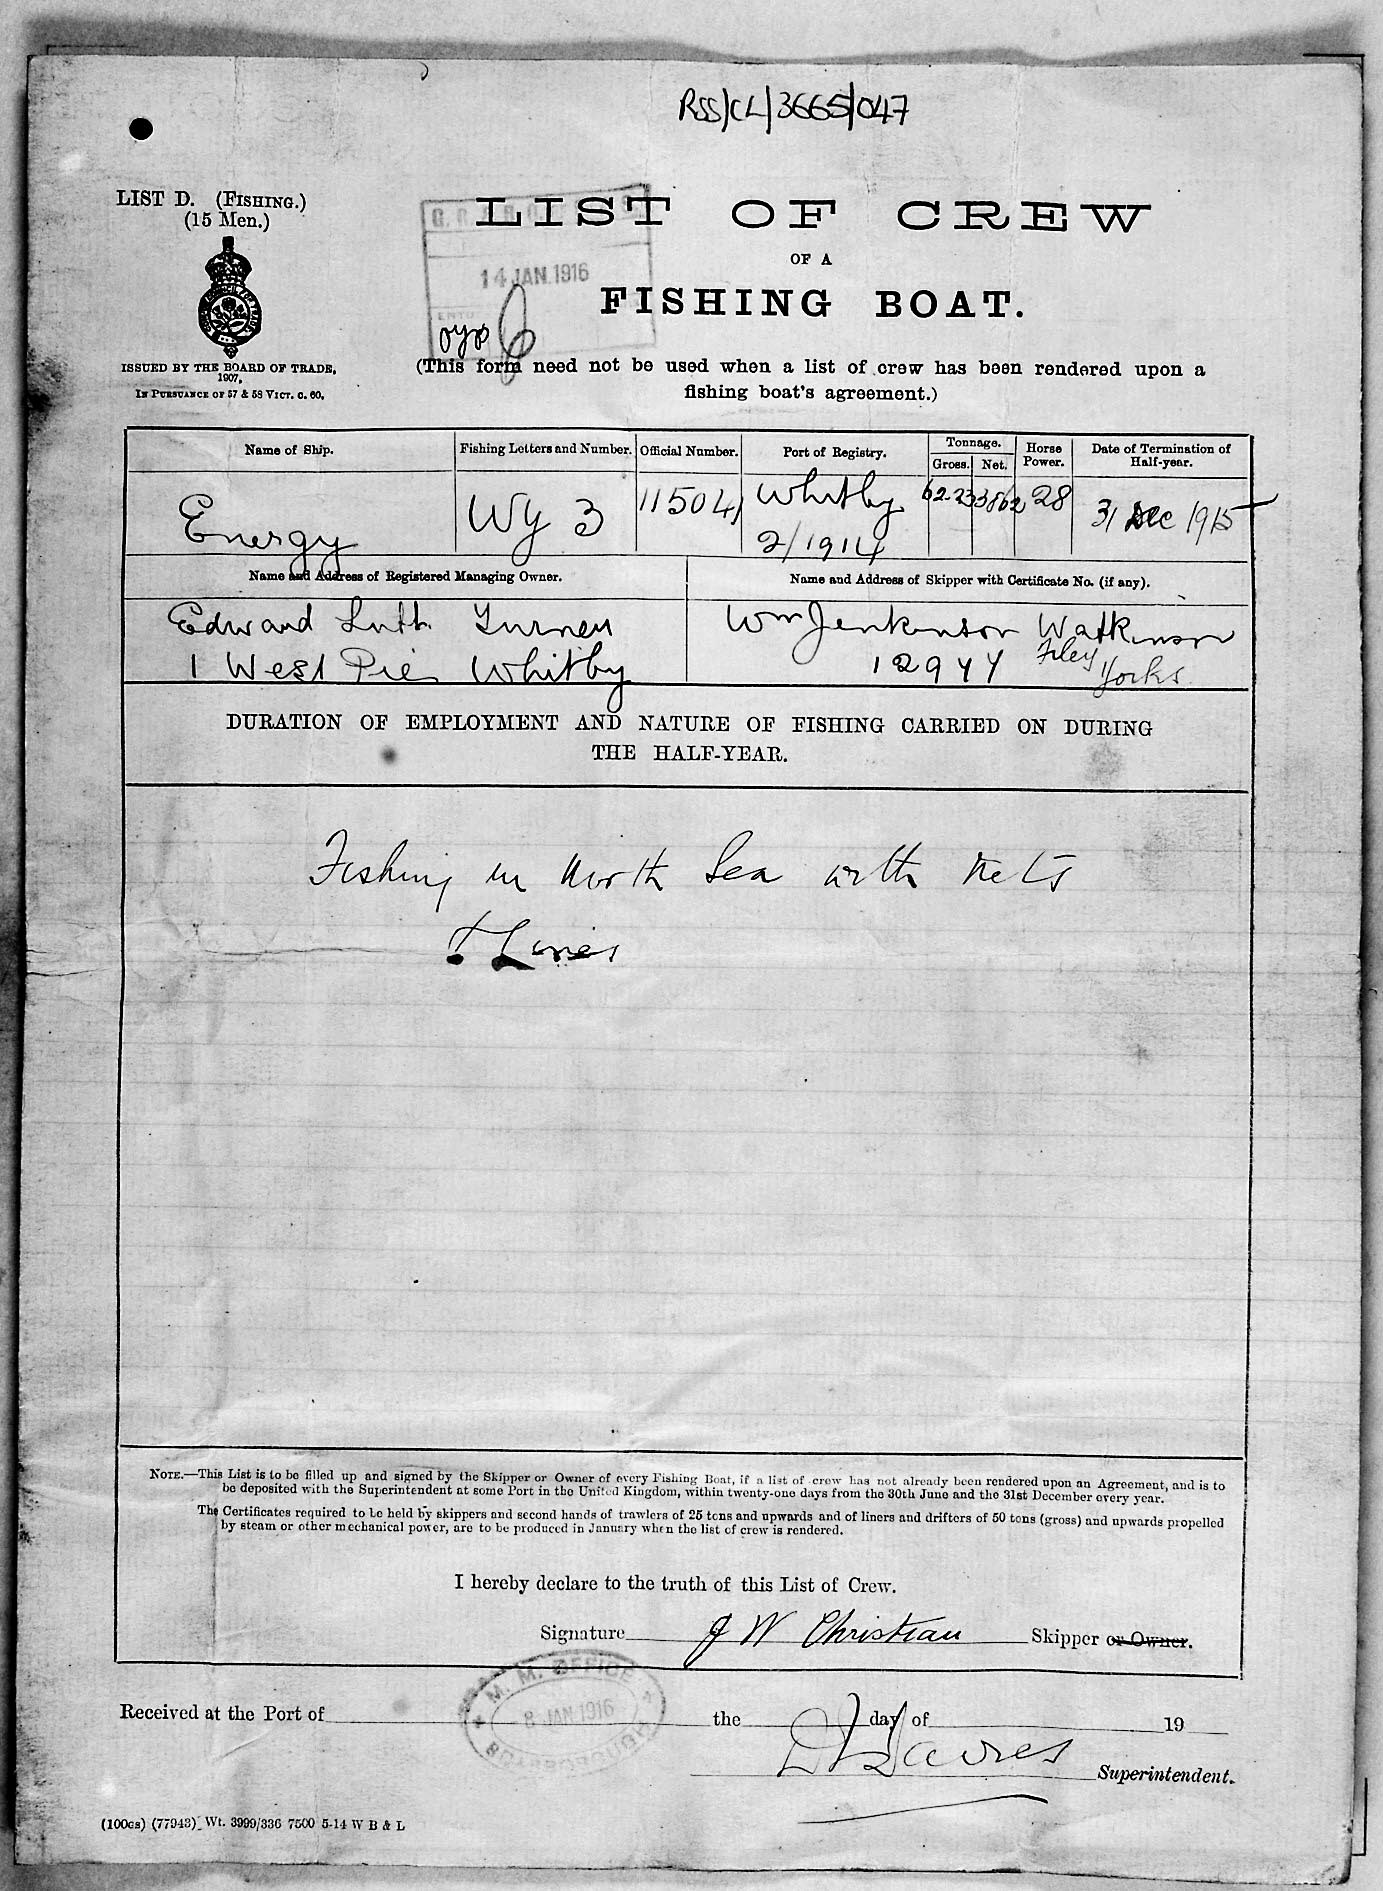 RSS/CL/3665/047
LIST D. (FISHING.)
(15 Men.)
ISSUED BY THE BOARD OF TRADE,
1907,
IN PURSUANCE OF 57 & 58 VICT. C. 60.
14 JAN. 1916
LIST OF CREW
OF A
FISHING BOAT.
(This form need not be used when a list of crew has been rendered upon a
fishing boat's agreement.)
Name of Ship. Fishing Letters and Number. Official Number. Port of Registry. Tonnage. Gross. Net. Horse Power. Date of Termination of Half-year.
Energy Wy 3 115041 Whitby 2/1914 62.23 3862 28 31 Dec 1915
Name and Address of Registered Managing Owner. Name and Address of Skipper with Certificate No. (if any).
Edward Turner Wm Jenkinson Watkinson
1 West Pier Whitby 12944 Filey Yorks
DURATION OF EMPLOYMENT AND NATURE OF FISHING CARRIED ON DURING
THE HALF-YEAR.
Fishing in North Sea with Nets
& Lines
NOTE.—This List is to be filled up and signed by the Skipper or Owner of every Fishing Boat, if a list of crew has not already been rendered upon an Agreement, and is to
be deposited with the Superintendent at some Port in the United Kingdom, within twenty-one days from the 30th June and the 31st December every year.
The Certificates required to be held by skippers and second hands of trawlers of 25 tons and upwards and of liners and drifters of 50 tons (gross) and upwards propelled
by steam or other mechanical power, are to be produced in January when the list of crew is rendered.
I hereby declare to the truth of this List of Crew.
Signature J W Christian Skipper or Owner.
M. M. OFFICE
8 JAN 1916
SCARBOROUGH
Received at the Port of the day of 19
Davies Superintendent.
(100cs) (77943) Wt. 3999/336 7500 5-14 W B & L